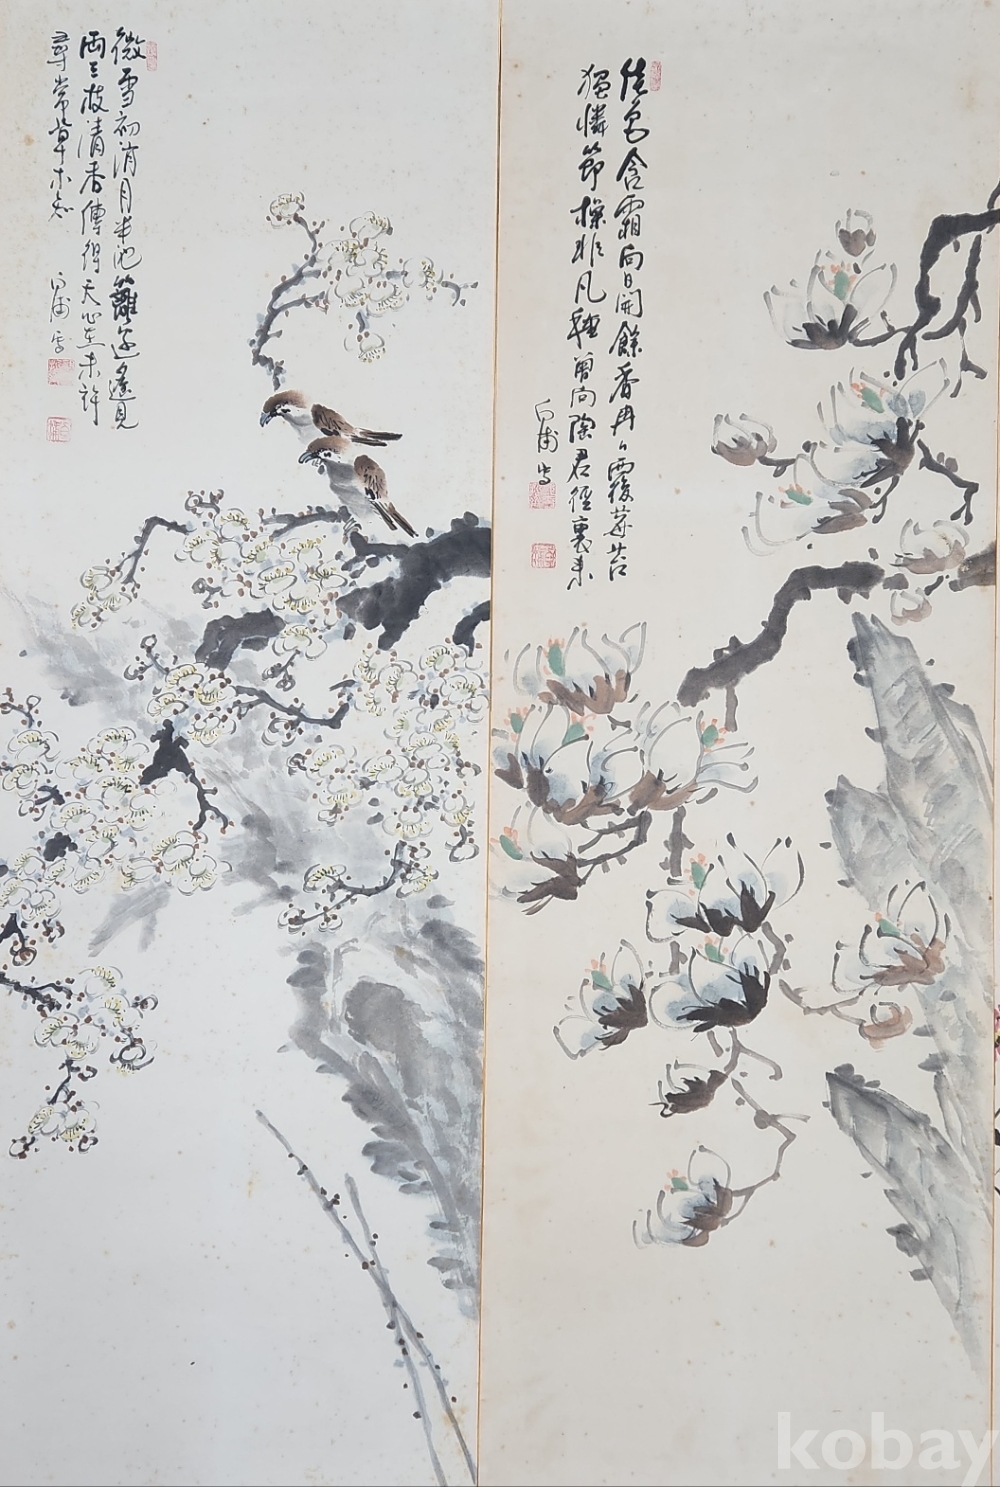 佳色含霜向日開餘香冉々覆莓苔
獨憐節操非凡種曾向陶君徑裏來
白浦寫
微雪初消月半池籬邊遙見
兩三枝清香傳得天心在未許
尋常草木知
白浦寫
kobay